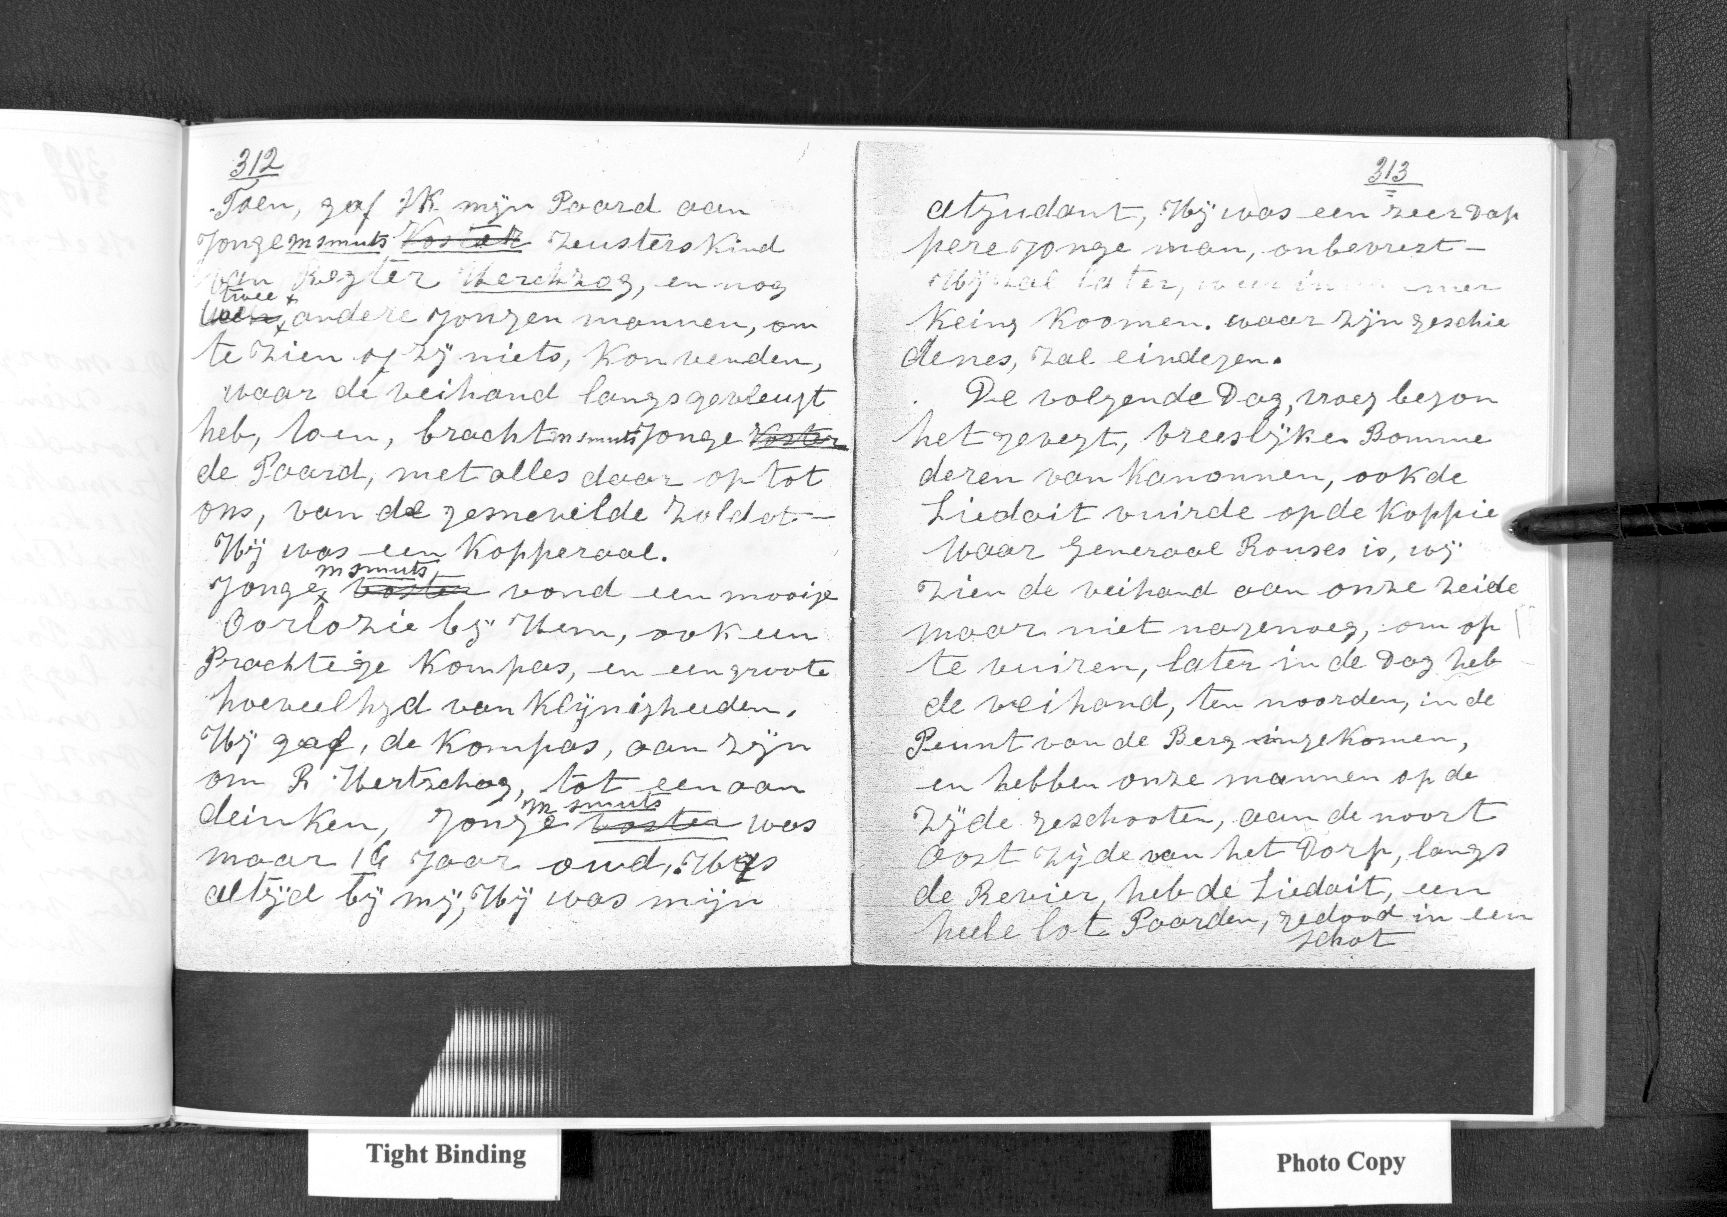 312
Toen, gaf IK mijn Paard aan
Jonge m smuts Voster Zeusters Kind
van Regter Herchzog, en nog
twee
twee andere Jongen mannen, om
te Zien of Zij niets, Kon venden,
waar de veihand langs gevleugt
heb, toen, bracht m smuts Jonge Voster
de Paard, met alles daar op tot
ons, van de gesnevelde Zoldot —
Hij was een Kopperaal.
m smuts
Jonge Voster vond een mooije
Oorlozie bij Hem, ook een
Prachteige Kompas, en een groote
hoeveelhyd van Klijnigheeden.
Hij gaf, de Kompas, aan Zijn
om R Hertzchog, tot een aan
deinken, Jonge m smuts voster was
maar 16 Jaar oud, Was
altijd bij mij, Hij was mijn
313
atjudant, Hij was een zeer Dap
pere Jonge man, onbevrest —
Hij Zal later, weer in mer
Keing Koomen. waar Zijn geschie
denes, Zal eindegen.
De volgende Dag, vroeg begon
het gevegt, vreeslijke Bomme
deren van Kanonnen, ook de
Liedait vuirde op de Koppie
Waar Generaal Rouses is, wij
Zien de veihand aan onze Zeide
maar niet nagenoeg, om op
te vuiren, later in de Dag heb
de veihand, ten noorden, in de
Peunt van de Berg ingekomen,
en hebben onze mannen op de
Zijde geschooten, aan de noort
Oost Zijde van het Dorp, langs
de Revier, heb de Liedait, een
heele lot Paarden, gedood in een
schot
Tight Binding
Photo Copy